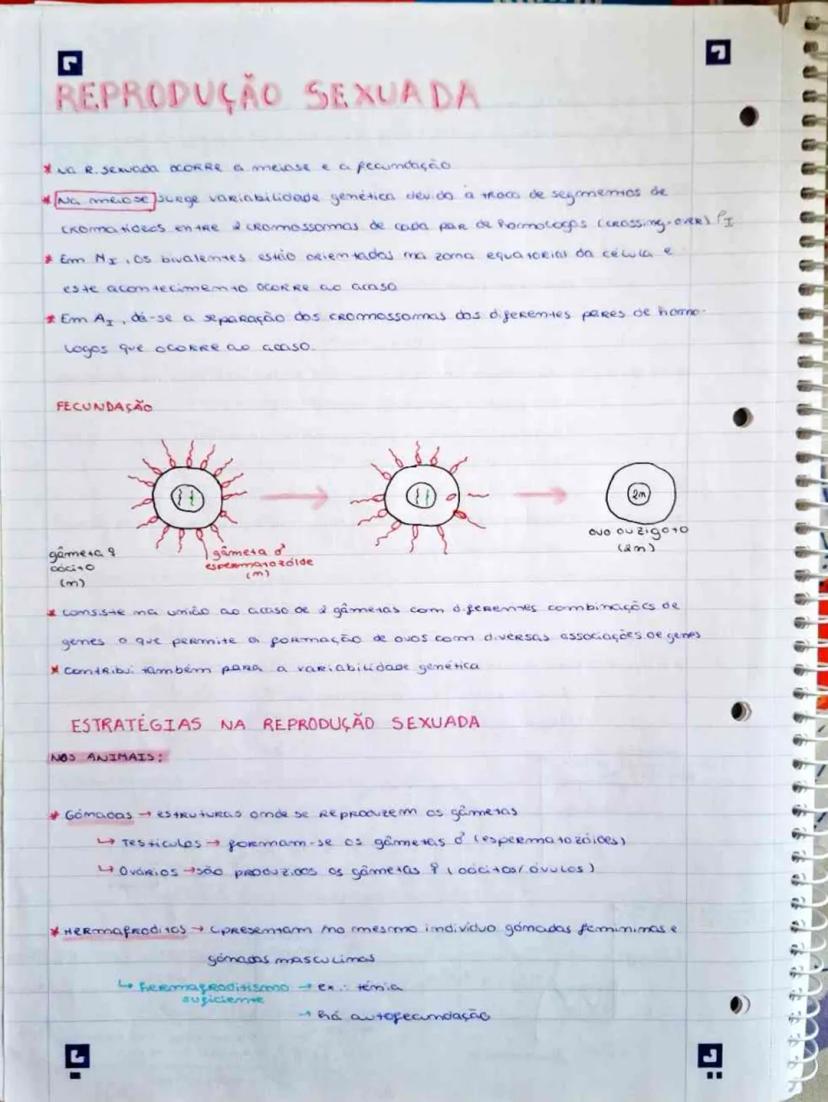 REPRODUÇÃO SEXUADA
* Na R. sexuada ocorre a meiose e a fecundação
* Na meiose surge variabilidade genética devido à troca de segmentos de
cromatídeos entre 2 cromossomas de cada par de homologos (crossing-over) PI
* Em MI, os bivalentes estão orientados na zona equatorial da célula e
este acontecimento ocorre ao acaso
* Em AI, dá-se a separação dos cromossomas dos diferentes pares de homo-
logos que ocorre ao acaso.
FECUNDAÇÃO
gâmeta ♀
oócito
(n)
gâmeta ♂
espermatozóide
(n)
2n
ovo ou zigoto
(2n)
* consiste na união ao acaso de 2 gâmetas com diferentes combinações de
genes o que permite a formação de ovos com diversas associações de genes
* contribui também para a variabilidade genética
ESTRATÉGIAS NA REPRODUÇÃO SEXUADA
NOS ANIMAIS:
* Gónadas → estruturas onde se reproduzem os gâmetas
↳ Testículos → formam-se os gâmetas ♂ (espermatozóides)
↳ Ovários → são produzidos os gâmetas ♀ (oócitos/óvulos)
* Hermafroditos → apresentam no mesmo indivíduo gónadas femininas e
gónadas masculinas
↳ hermafroditismo → ex.: ténia
suficiente
→ há autofecundação